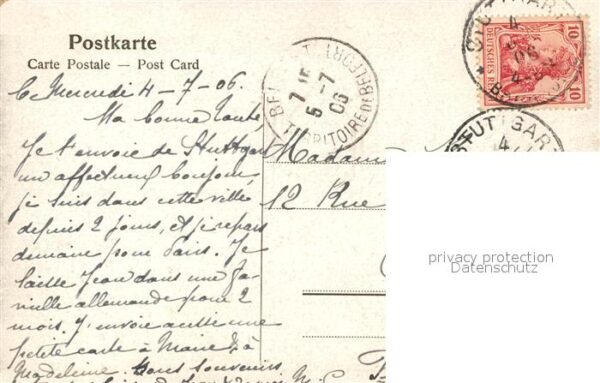 Postkarte
Carte Postale — Post Card
Mercredi 4-7-06.
Ma bonne tante,
Je t'envoie de Stuttgart
un affectueux bonjour,
je suis dans cette ville
depuis 2 jours, et je repars
demain pour Paris. Je
laisse Jean dans une fa-
mille allemande pour 2
mois. J'envoie aussi une
petite carte à Marie &
Madeleine. Bons souvenirs
Madame
12 Rue
BELFORT
TERRITOIRE DE BELFORT
7 15
5 -7
06
STUTTGART
4
06
10 10
DEUTSCHES REICH
STUTTGART
4
privacy protection
Datenschutz